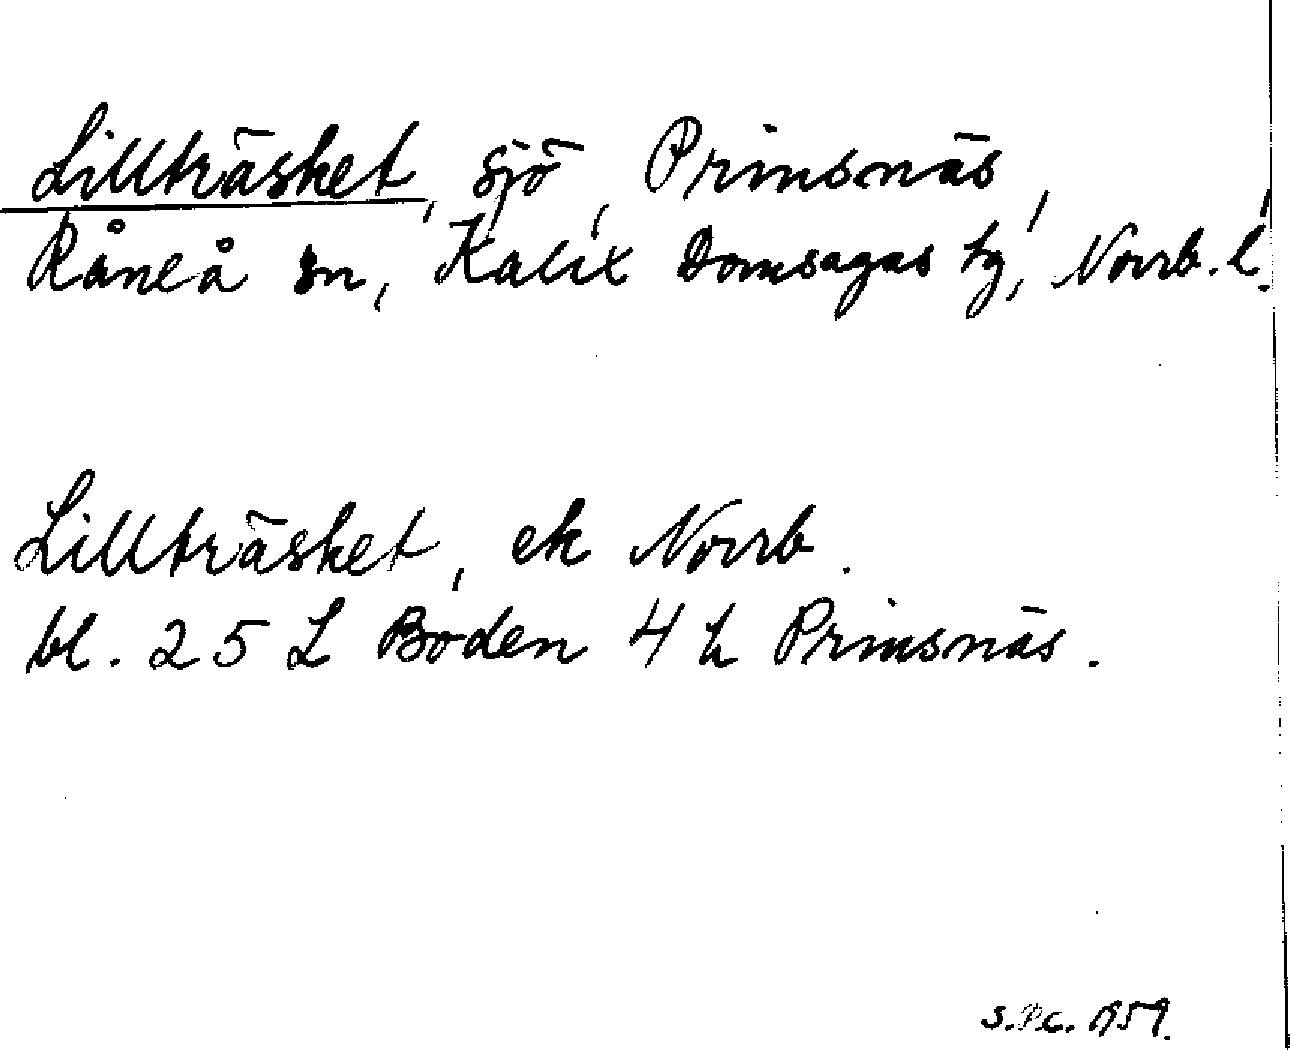 Lillträsket, sjö, Prinsnäs,
Råneå sn, Kalix Domsagas tg, Norrb. l.
Lillträsket, ek Norrb.
bl. 25 L Boden 4 h Prinsnäs.
S.P.G. 1959.